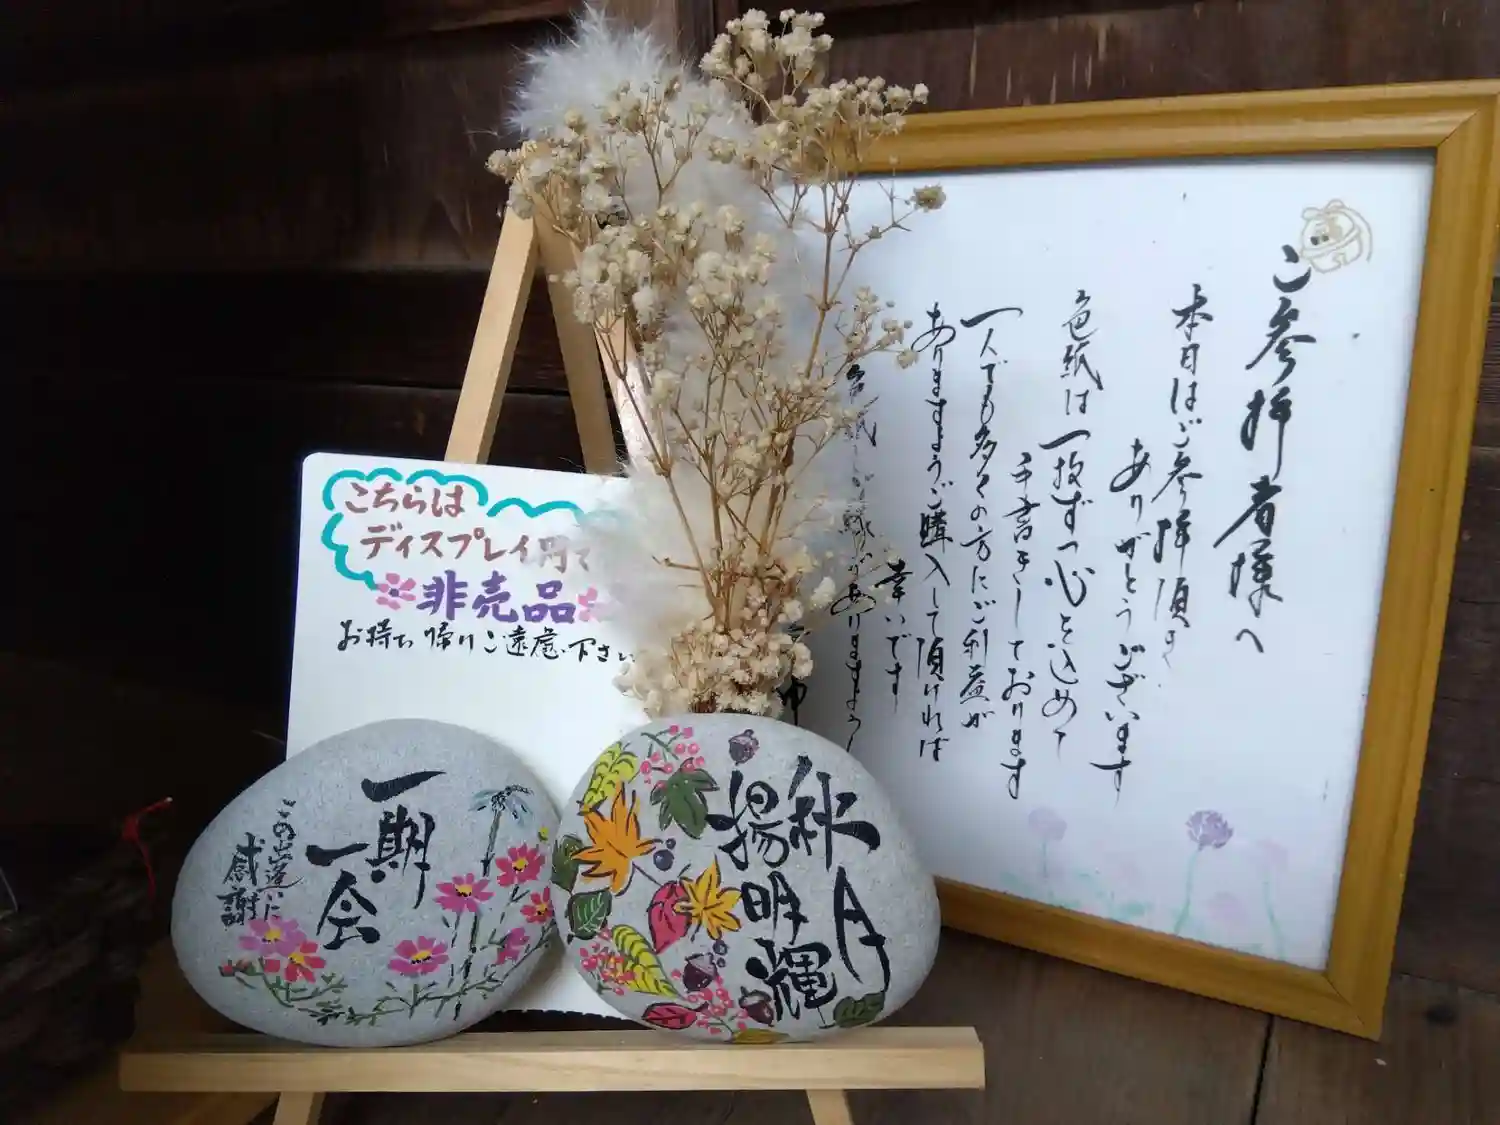 ご参拝者様へ
本日はご参拝頂き
ありがとうございます
色紙は一枚ずつ心を込めて
手書きしております
一人でも多くの方にご利益が
ありますようご購入して頂ければ
幸いです
こちらは
ディスプレイ用で
非売品
お持ち帰りご遠慮下さい
一期
一会
この出逢いに
感謝
秋月
揚明輝